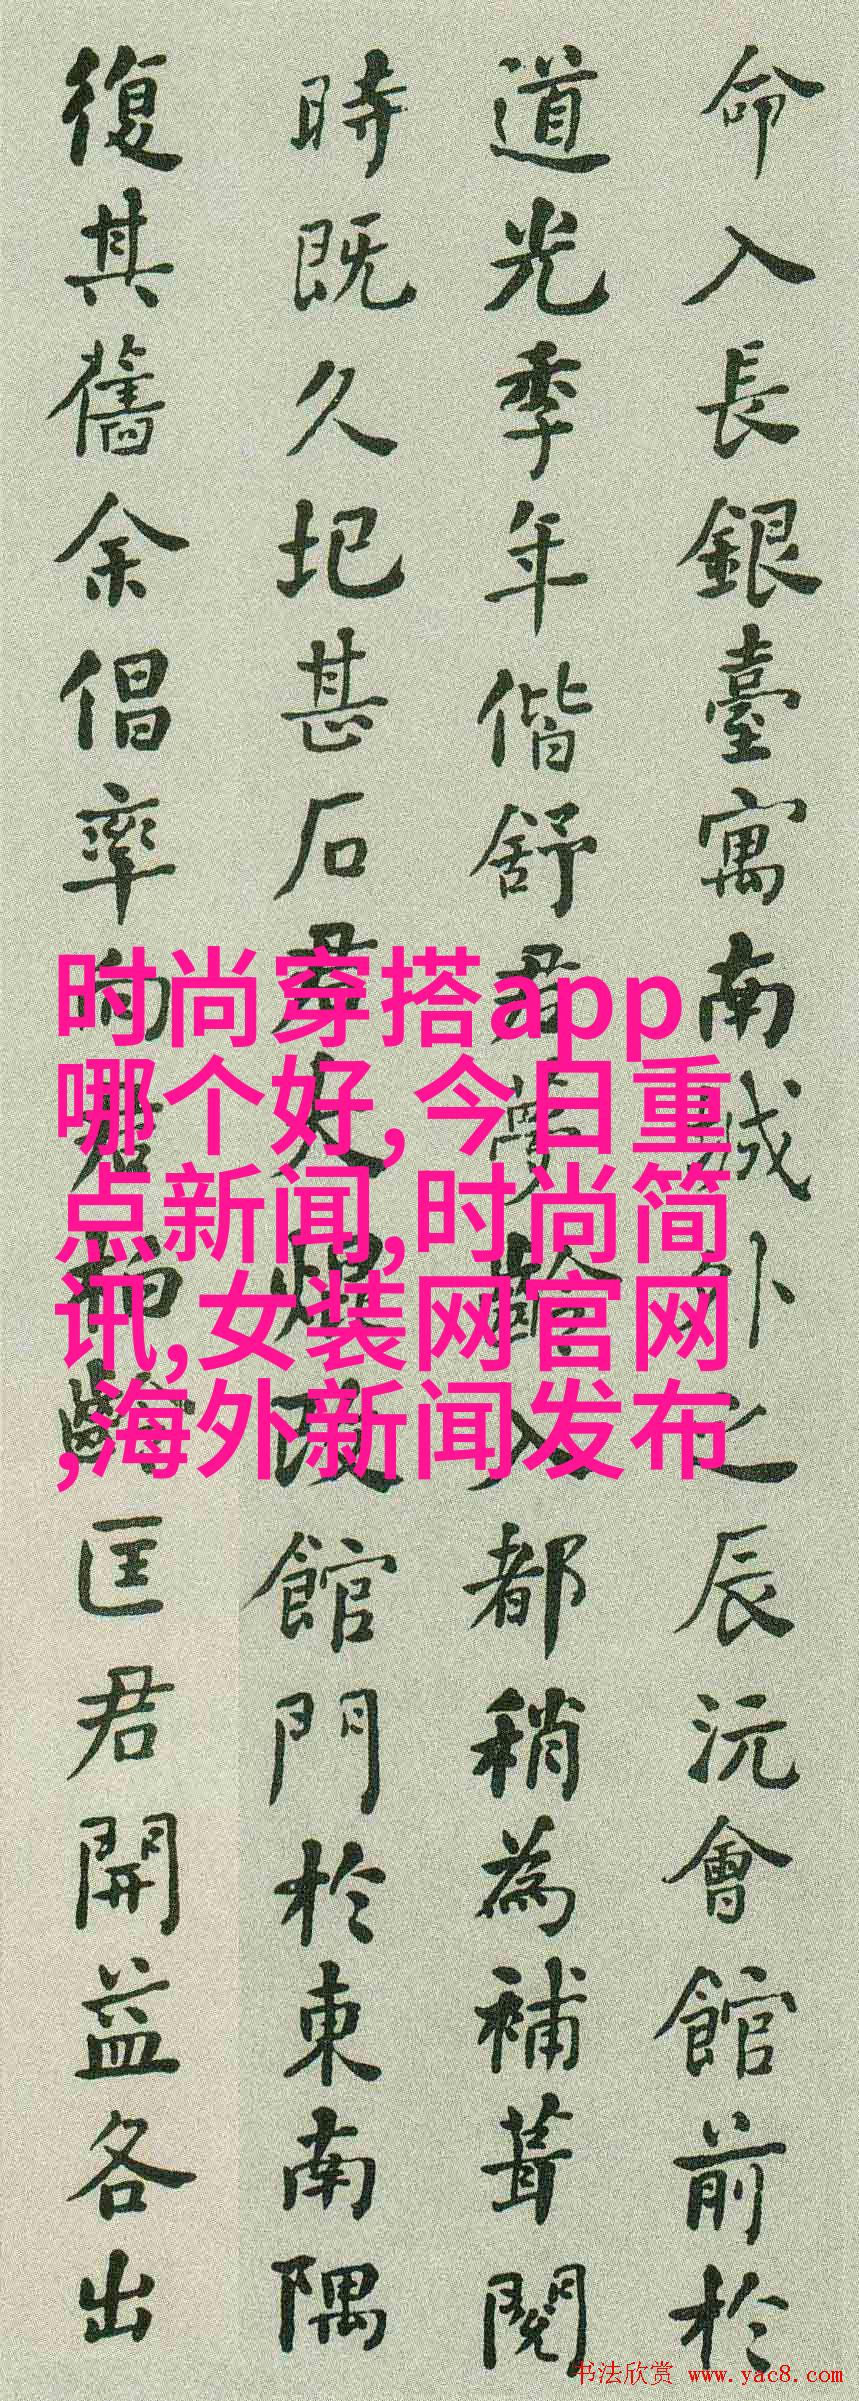 命入長銀臺寓南城外之辰沅會館前於
道光季年偕舒君夢齡入都稍為補葺閱
時既久圮甚石君大焜改館門於東南隅
復其舊余倡率向君柏齡匡君開益各出
时尚穿搭app
哪个好,今日重
点新闻,时尚简
讯,女装网官网
,海外新闻发布
书法欣赏 www.yac8.com